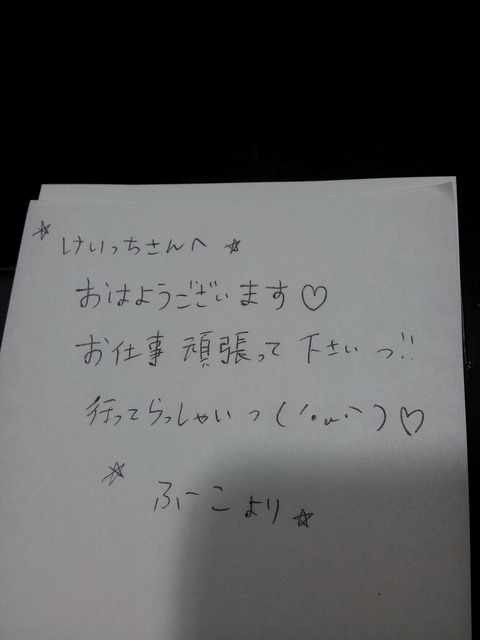 ☆けいっちさんへ☆
おはようございます♡
お仕事頑張って下さいっ!!
行ってらっしゃいっ(´•ω•`)♡
☆ふーこより☆